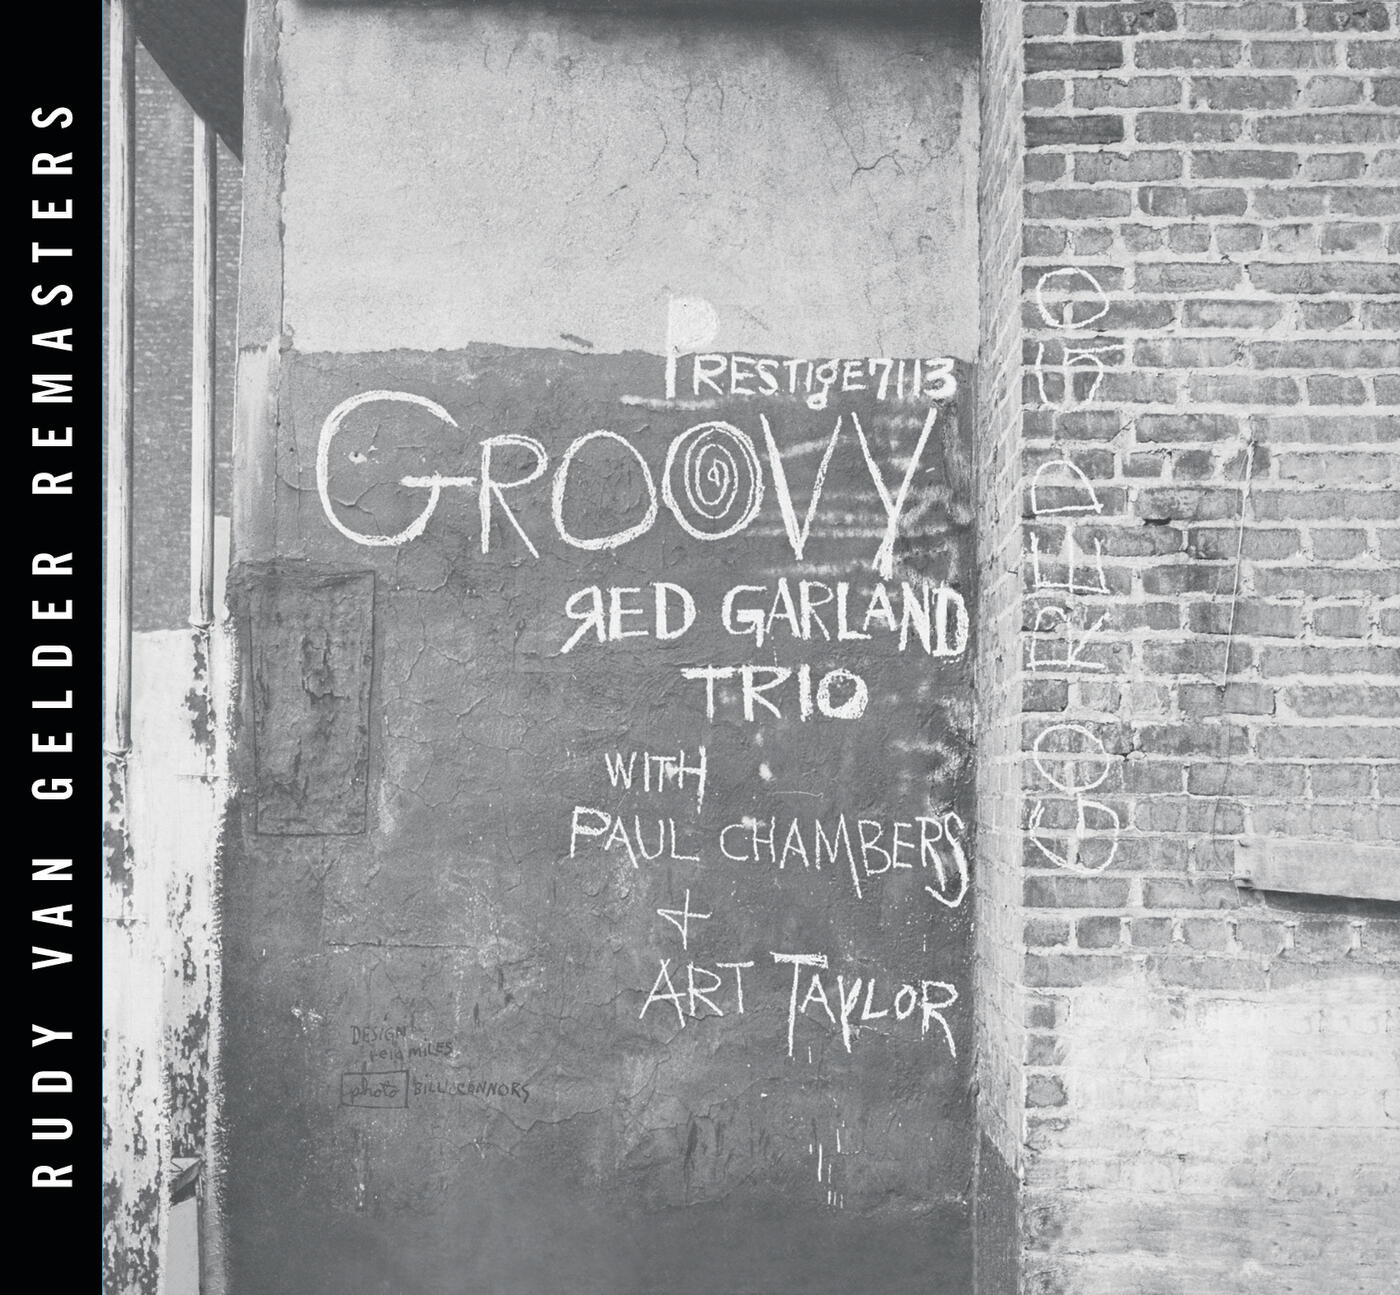 RUDY VAN GELDER REMASTERS
PRESTIgE 7113
GROOVY
RED GARLAND
TRIO
WITH
PAUL CHAMBERS
+
ART TAYLOR
GO RED GO
DESIGN
reid MILES
photo BILL CONNORS